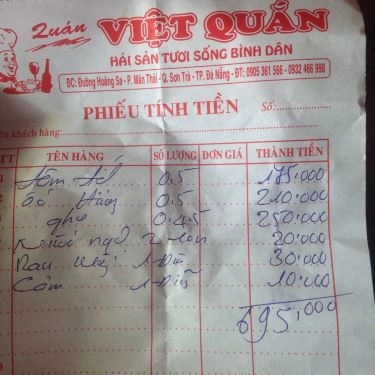 Quán VIỆT QUÁN
HẢI SẢN TƯƠI SỐNG BÌNH DÂN
ĐC: Đường Hoàng Sa - P. Mân Thái - Q. Sơn Trà - TP. Đà Nẵng - ĐT: 0905 361 566 - 0932 466 998
PHIẾU TÍNH TIỀN Số:
ên khách hàng:
TT TÊN HÀNG SỐ LƯỢNG ĐƠN GIÁ THÀNH TIỀN
0.5 175.000
0.5 210.000
ghẹ 0.45 250.000
Nước ngọt 2 lon 20.000
Rau 1 Dĩa 30.000
Cơm 1 Dĩa 10.000
695.000